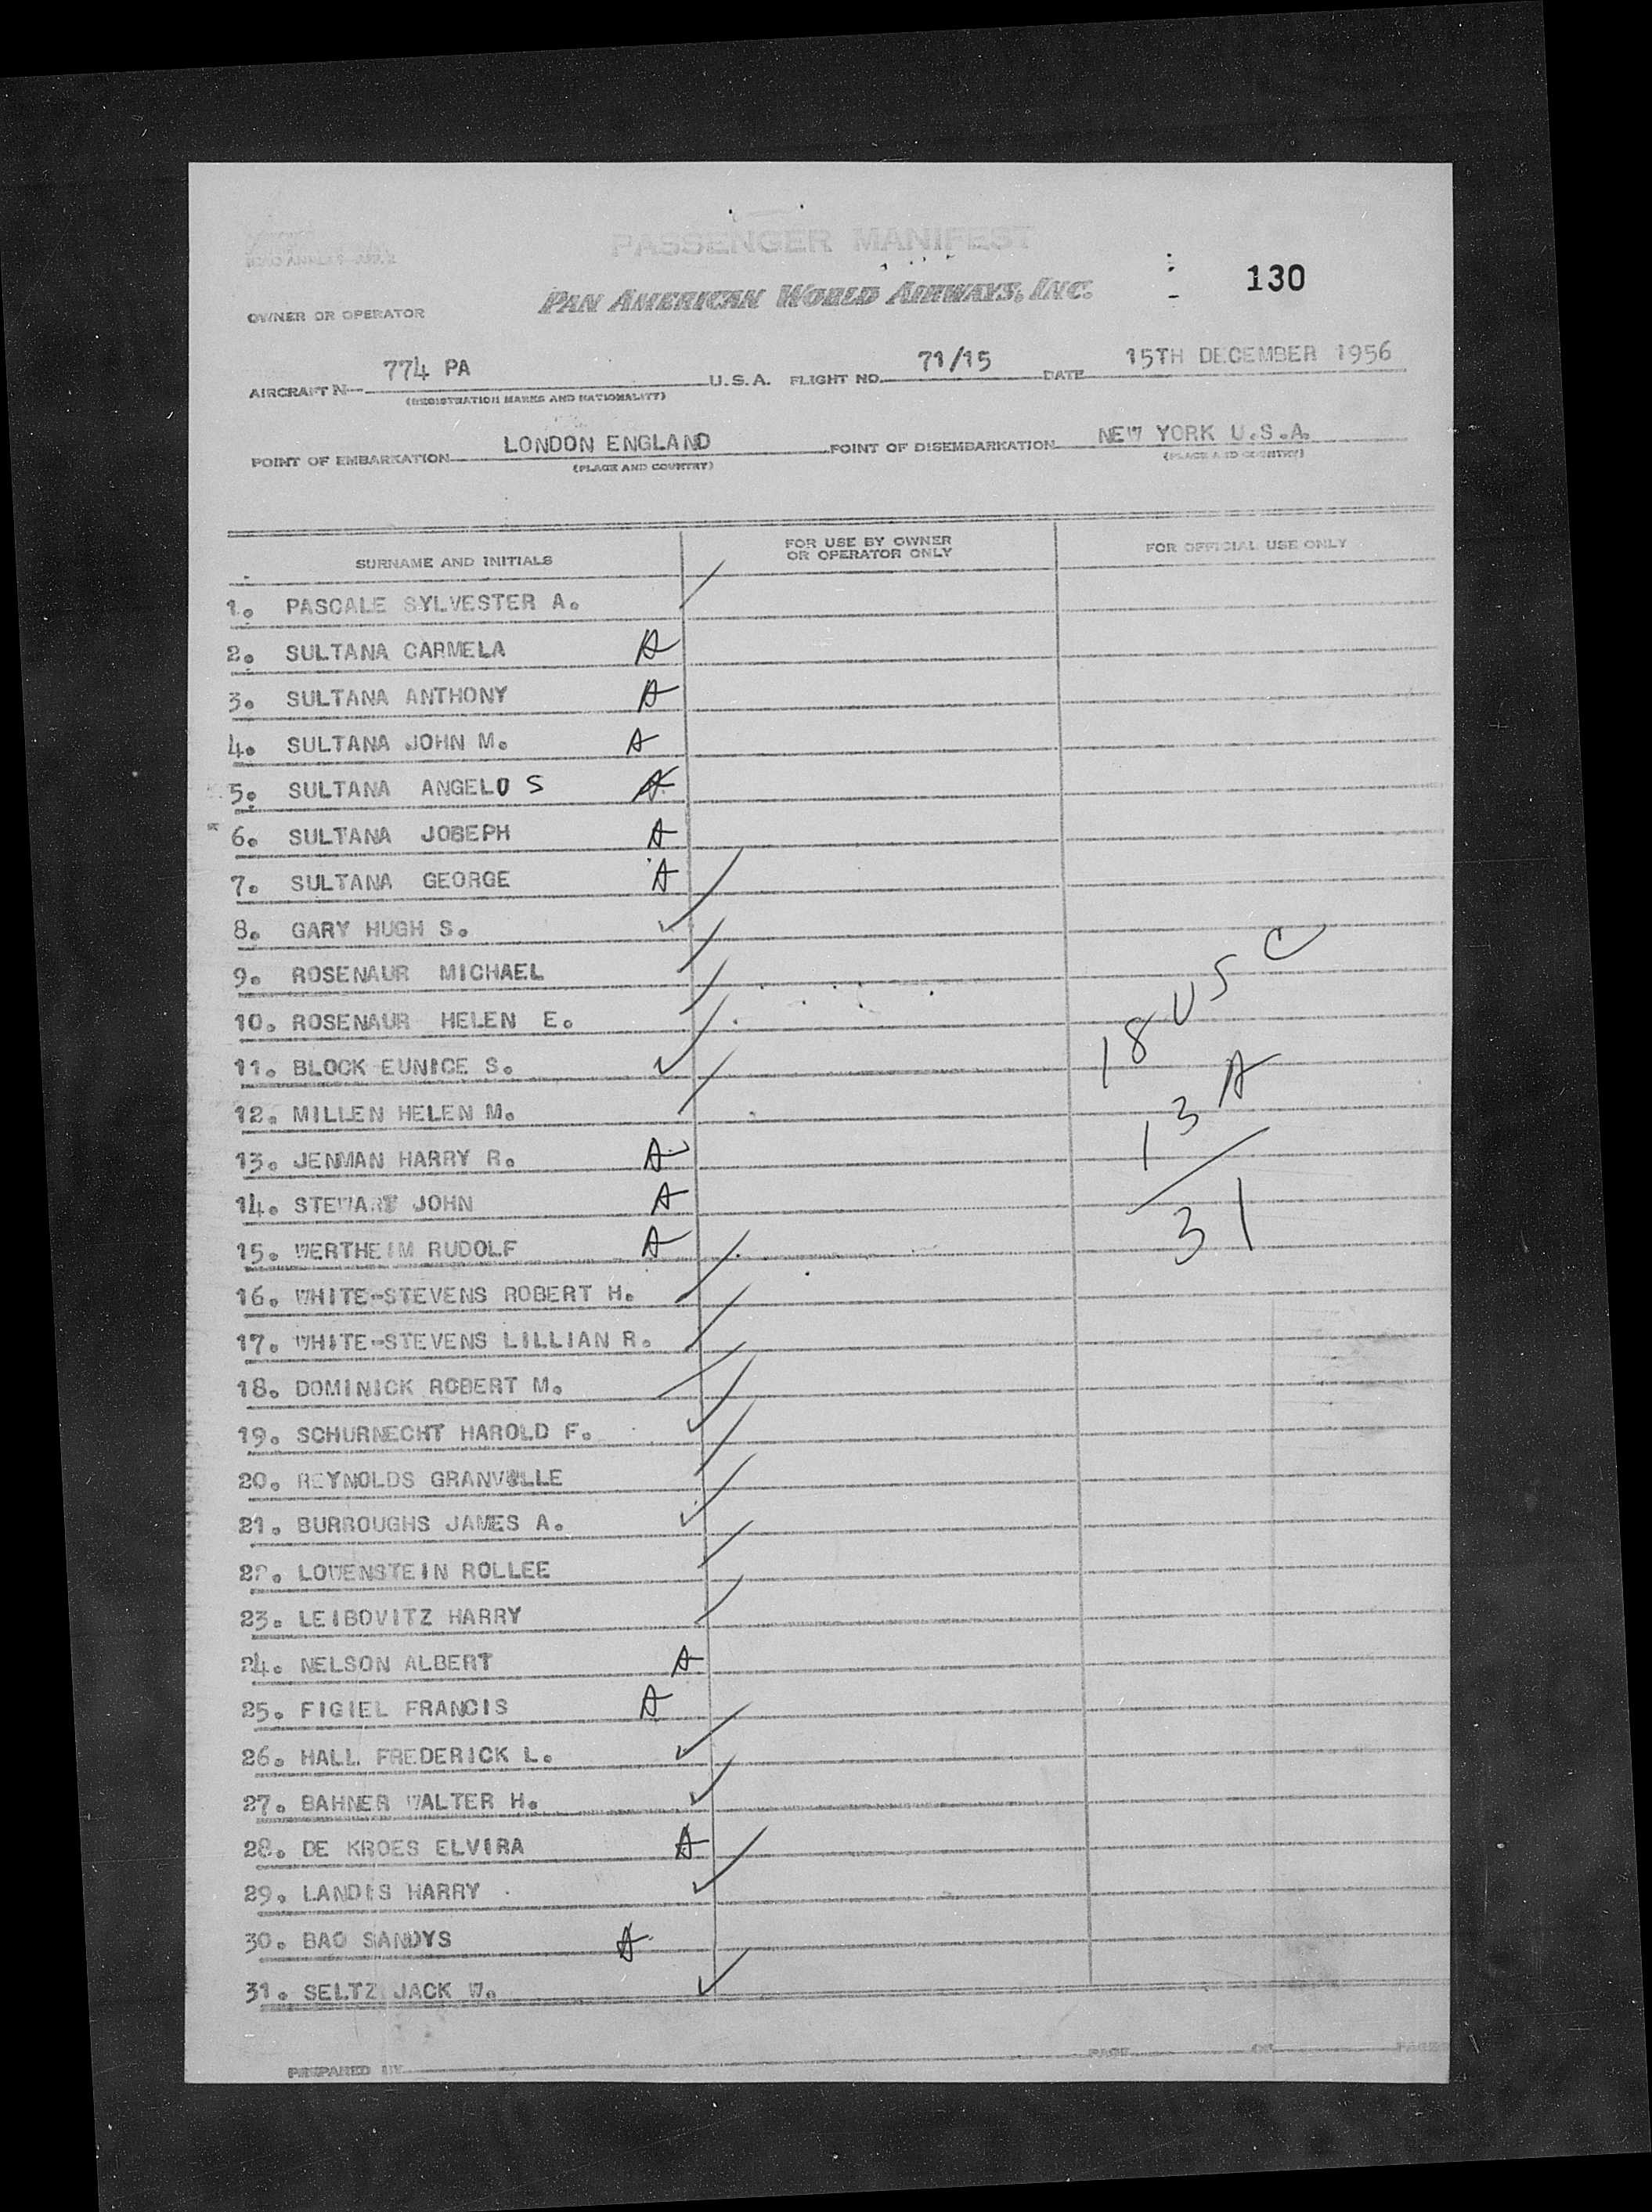 PASSENGER MANIFEST
PAN AMERICAN WORLD AIRWAYS, INC.
130
OWNER OR OPERATOR
AIRCRAFT N 774 PA U.S.A. FLIGHT NO. 71/15 DATE 15TH DECEMBER 1956
(REGISTRATION MARKS AND NATIONALITY)
POINT OF EMBARKATION LONDON ENGLAND POINT OF DISEMBARKATION NEW YORK U.S.A.
(PLACE AND COUNTRY) (PLACE AND COUNTRY)
SURNAME AND INITIALS FOR USE BY OWNER OR OPERATOR ONLY FOR OFFICIAL USE ONLY
1. PASCALE SYLVESTER A.
2. SULTANA CARMELA A
3. SULTANA ANTHONY A
4. SULTANA JOHN M. A
5. SULTANA ANGELO S A
6. SULTANA JOBEPH A
7. SULTANA GEORGE A
8. GARY HUGH S.
9. ROSENAUR MICHAEL
10. ROSENAUR HELEN E.
18 USC
11. BLOCK EUNICE S.
12. MILLEN HELEN M.
13 A
13. JENMAN HARRY R. A
14. STEWART JOHN A
31
15. WERTHEIM RUDOLF A
16. WHITE-STEVENS ROBERT H.
17. WHITE-STEVENS LILLIAN R.
18. DOMINICK ROBERT M.
19. SCHURNECHT HAROLD F.
20. REYNOLDS GRANVILLE
21. BURROUGHS JAMES A.
22. LOWENSTEIN ROLLEE
23. LEIBOVITZ HARRY
24. NELSON ALBERT A
25. FIGIEL FRANCIS A
26. HALL FREDERICK L.
27. BAHNER WALTER H.
28. DE KROES ELVIRA A
29. LANDIS HARRY
30. BAO SANDYS A
31. SELTZ JACK W.
PREPARED BY PAGE OF PAGES